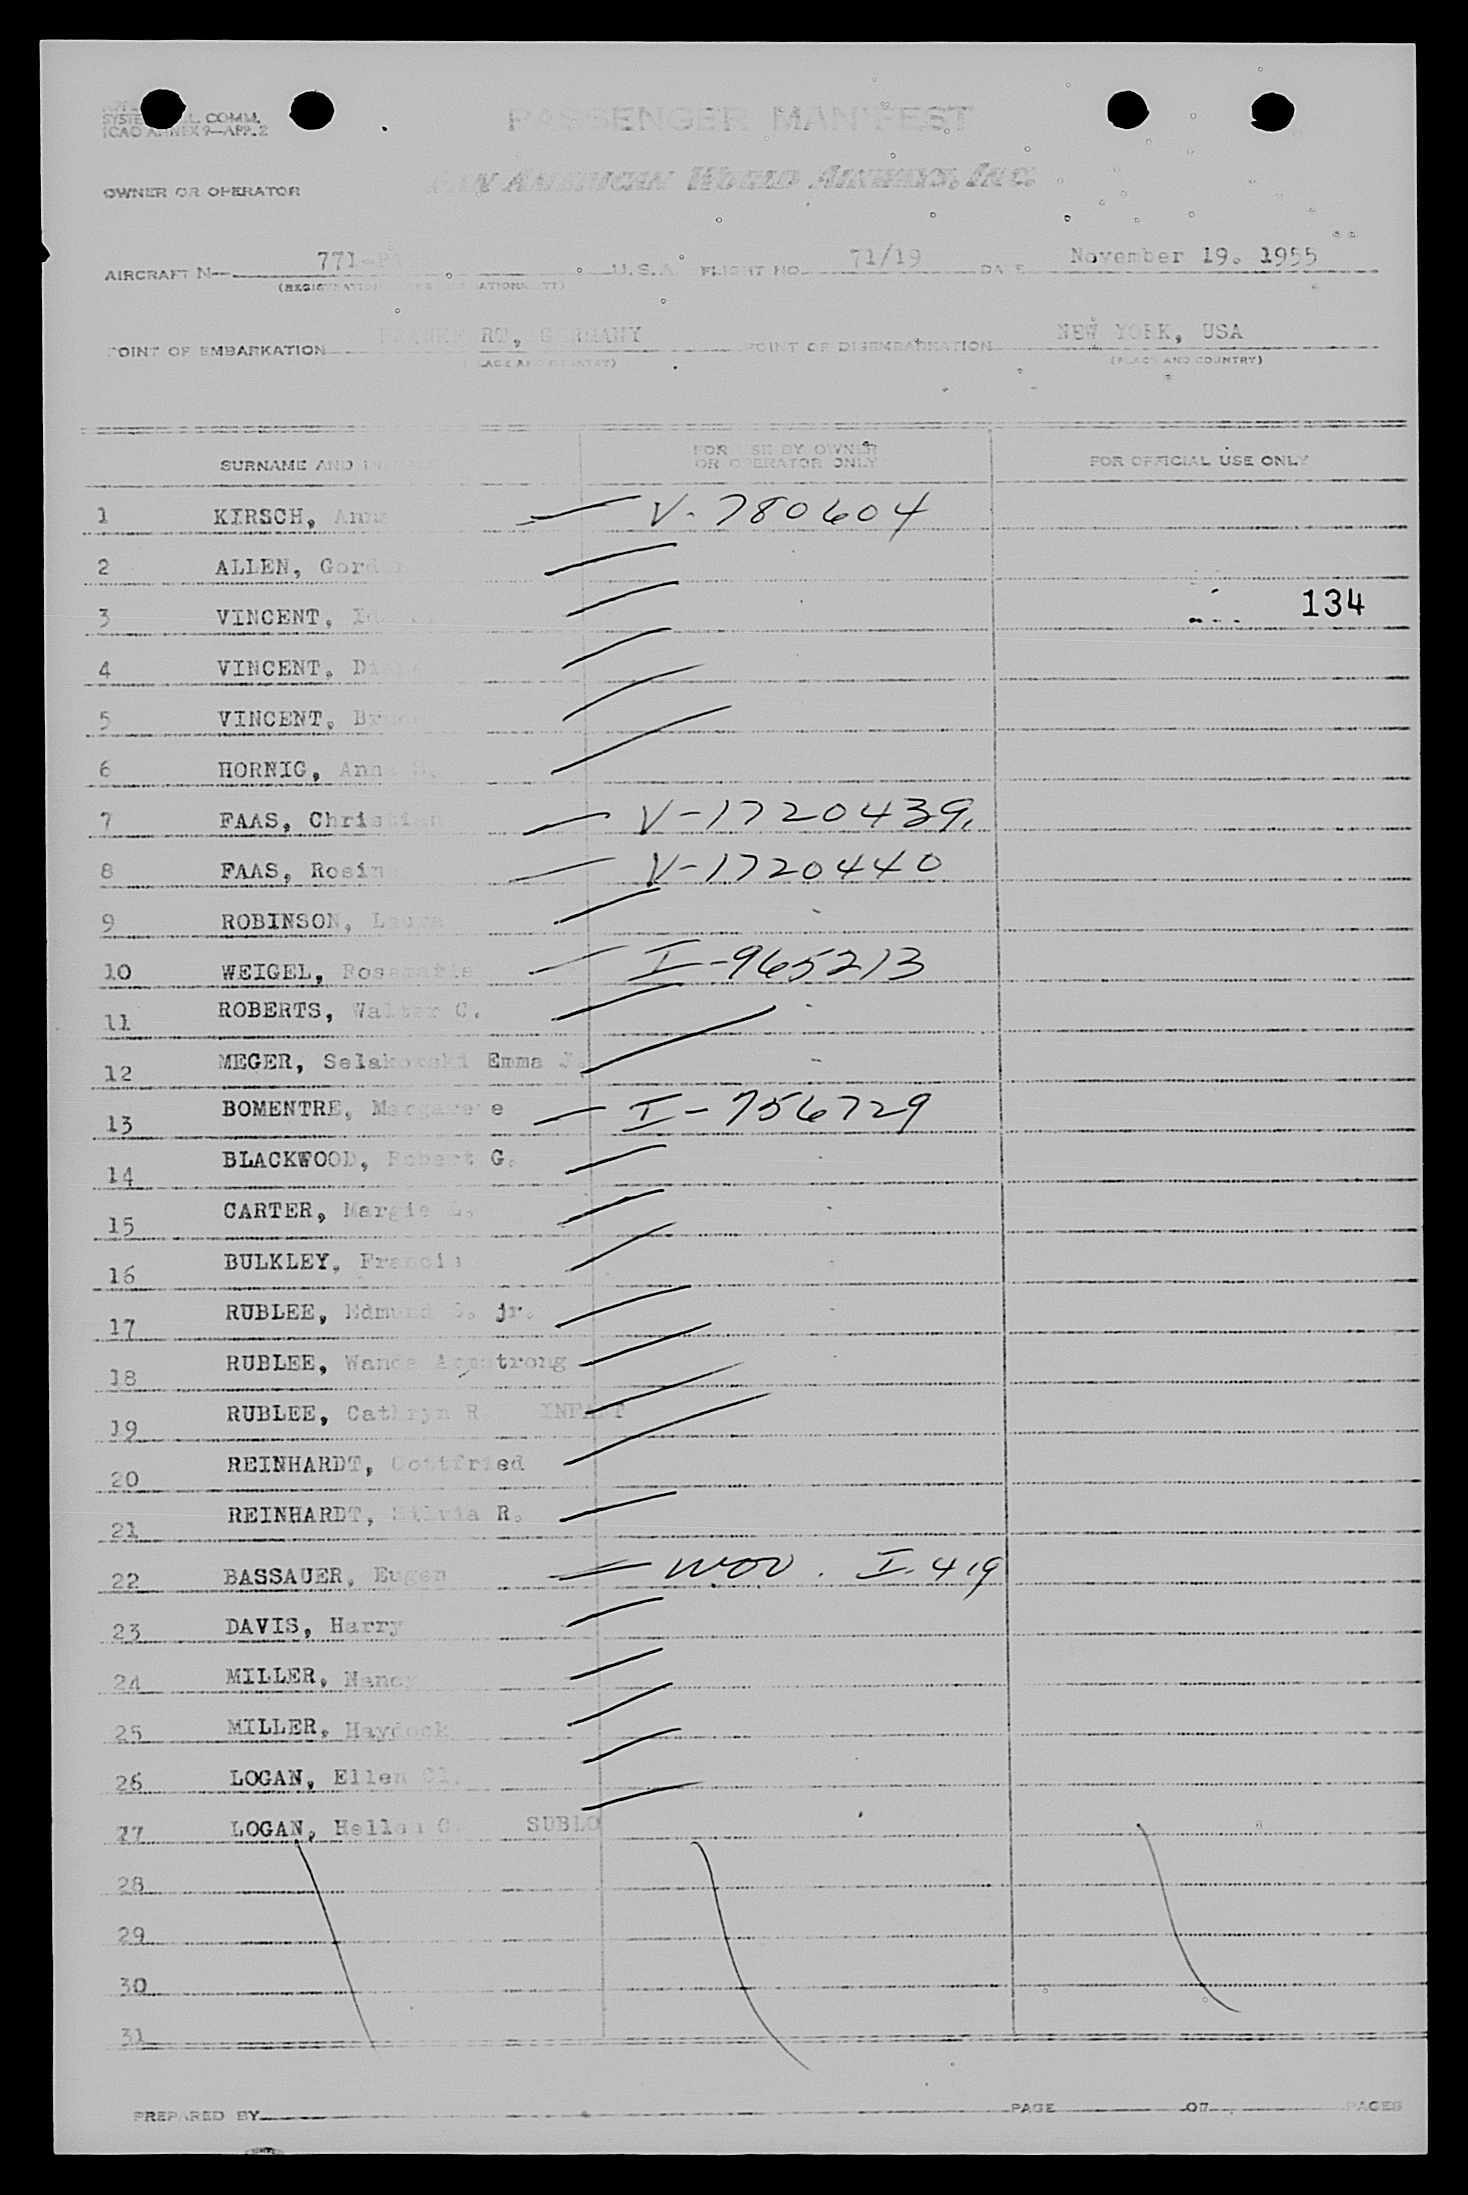 SYSTE L. COMM.
ICAO ANNEX 9—APP. 2
PASSENGER MANIFEST
PAN AMERICAN WORLD AIRWAYS, INC.
OWNER OR OPERATOR
AIRCRAFT N— 771 U.S.A. FLIGHT NO. 71/19 DATE November 19. 1955
POINT OF EMBARKATION GERMANY POINT OF DISEMBARKATION NEW YORK, USA
(PLACE AND COUNTRY) (PLACE AND COUNTRY)
SURNAME AND FOR USE BY OWNER OR OPERATOR ONLY FOR OFFICIAL USE ONLY
1 KIRSCH, Anna V-780604
2 ALLEN, Gord
3 VINCENT, 134
4 VINCENT, D
5 VINCENT, Br
6 HORNIG, Anna
7 FAAS, Christian V-1720439.
8 FAAS, Rosin V-1720440
9 ROBINSON, Laura
10 WEIGEL, Rosemarie I-965213
11 ROBERTS, Walter C.
12 MEGER, Selakowski Emma J.
13 BOMENTRE, Margarete I-756729
14 BLACKWOOD, Robert G.
15 CARTER, Margie L.
16 BULKLEY, Francis
17 RUBLEE, Edmund jr.
18 RUBLEE, Wanda Armstrong
19 RUBLEE, Cathryn R. INFANT
20 REINHARDT, Gottfried
21 REINHARDT, Silvia R.
22 BASSAUER, Eugen WOV. I-419
23 DAVIS, Harry
24 MILLER, Nancy
25 MILLER, Haydock
26 LOGAN, Ellen Cl.
27 LOGAN, Hellen C. SUBLO
28
29
30
31
PREPARED BY PAGE OF PAGES